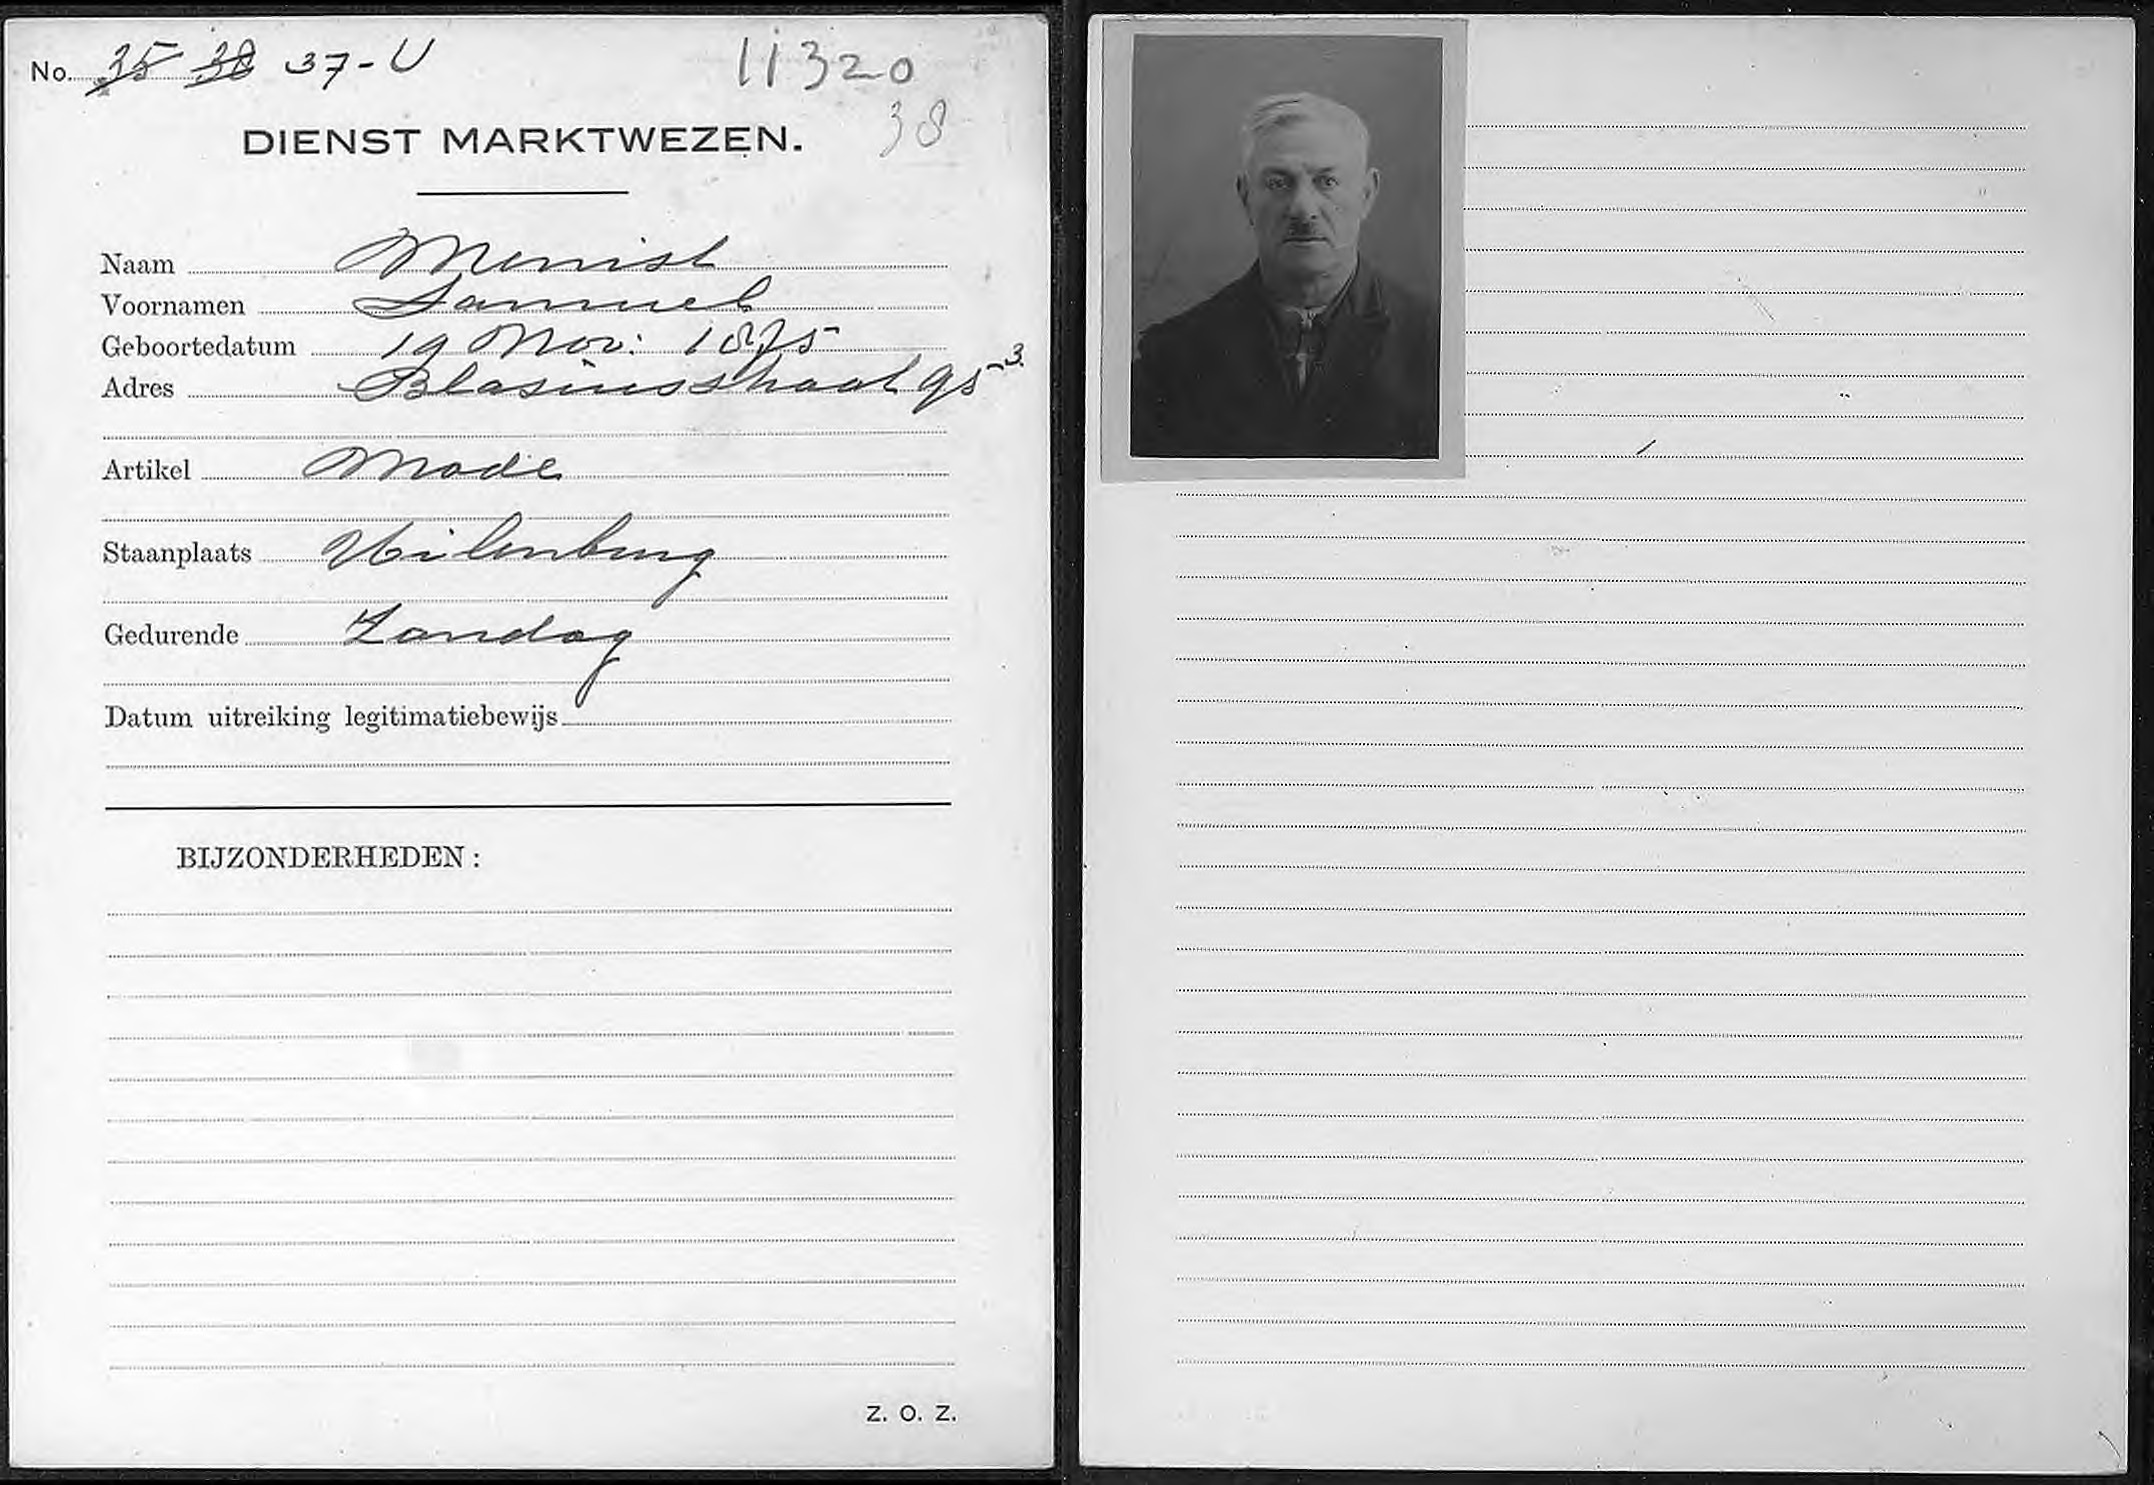 No. 35 38 37-U
11320
38
DIENST MARKTWEZEN.
Naam Menist
Voornamen Samuel
Geboortedatum 19 Nov: 1875
Adres Blasiusstraat 95 3.
Artikel Mode
Staanplaats Uilenburg
Gedurende Zondag
Datum uitreiking legitimatiebewijs
BIJZONDERHEDEN :
Z. O. Z.